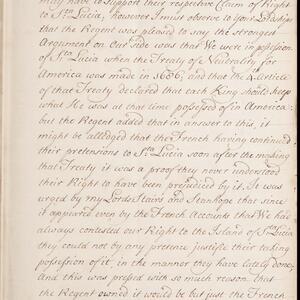 may have to Support their respective Claim of Right
to S.ta Lucia, however I must observe to your Lordships
that the Regent was pleased to say the strongest
Argument on Our Side was that We were in possession
of S.ta Lucia when the Treaty of Neutrality for
America was made in 1686; and that the 4 Article
of that Treaty declared that each King should keep
what He was at that time possessed of in America:
but the Regent added that in answer to this, it
might be alledged that the French having continued
their pretensions to S.ta Lucia soon after the making
that Treaty it was a proof they never understood
their Right to have been prejudiced by it. It was
urged by my Lords Stairs and Stanhope that since
it appeared even by the French Accounts that We had
always contested our Right to the Island of S.ta Lucia
they could not by any pretence justifie their taking
possession of it, in the manner they have lately done,
And this was pressed with so much reason that
the Regent owned it would be but just the French